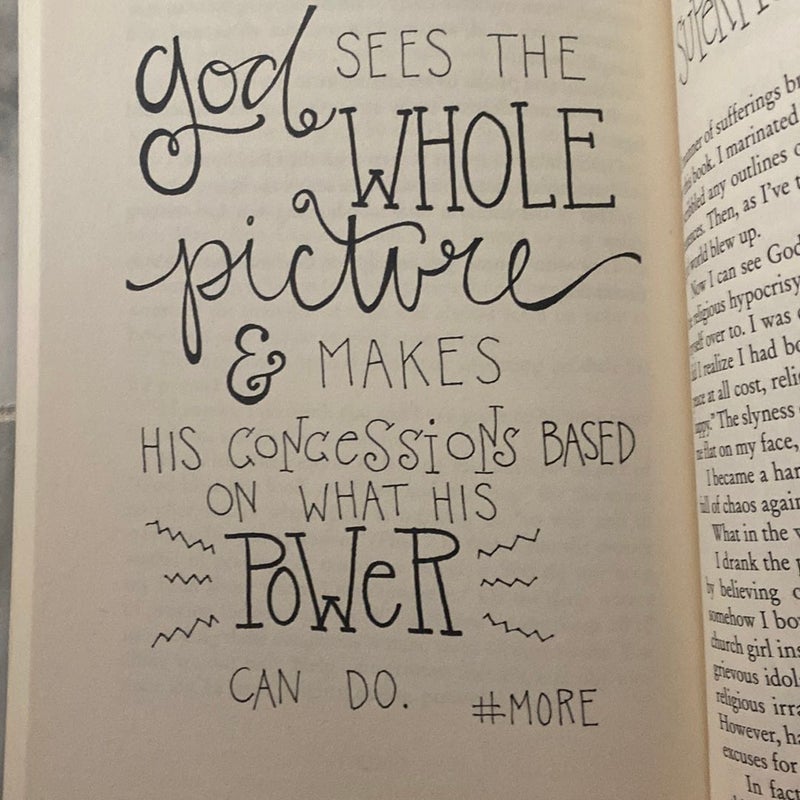 god SEES THE
WHOLE
picture
& MAKES
HIS CoNCeSSioNS BASED
ON WHAT HIS
PoWeR
CAN DO. #MORE
of sufferings
book. I marinated
any outlines
Then, as I've
world blew up.
Now I can see God
religious hypocrisy
over to. I was
I realize I had
at all cost,
The slyness
flat on my face,
I became a
of chaos
What in the
I drank the
by believing
somehow I
church girl
grievous
religious
However,
excuses for
In fact